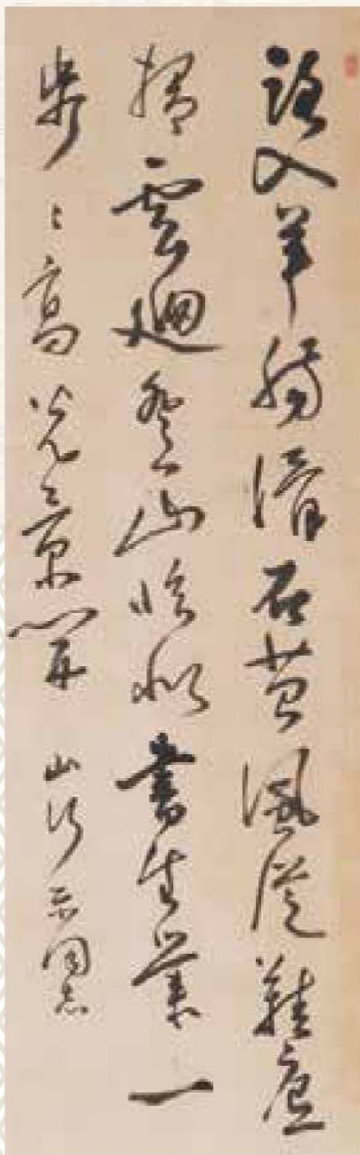 路入羊腸滑石苔風從鞋底
掃雲廻登山恰似書生業一
步〻高光景開 山行示同志